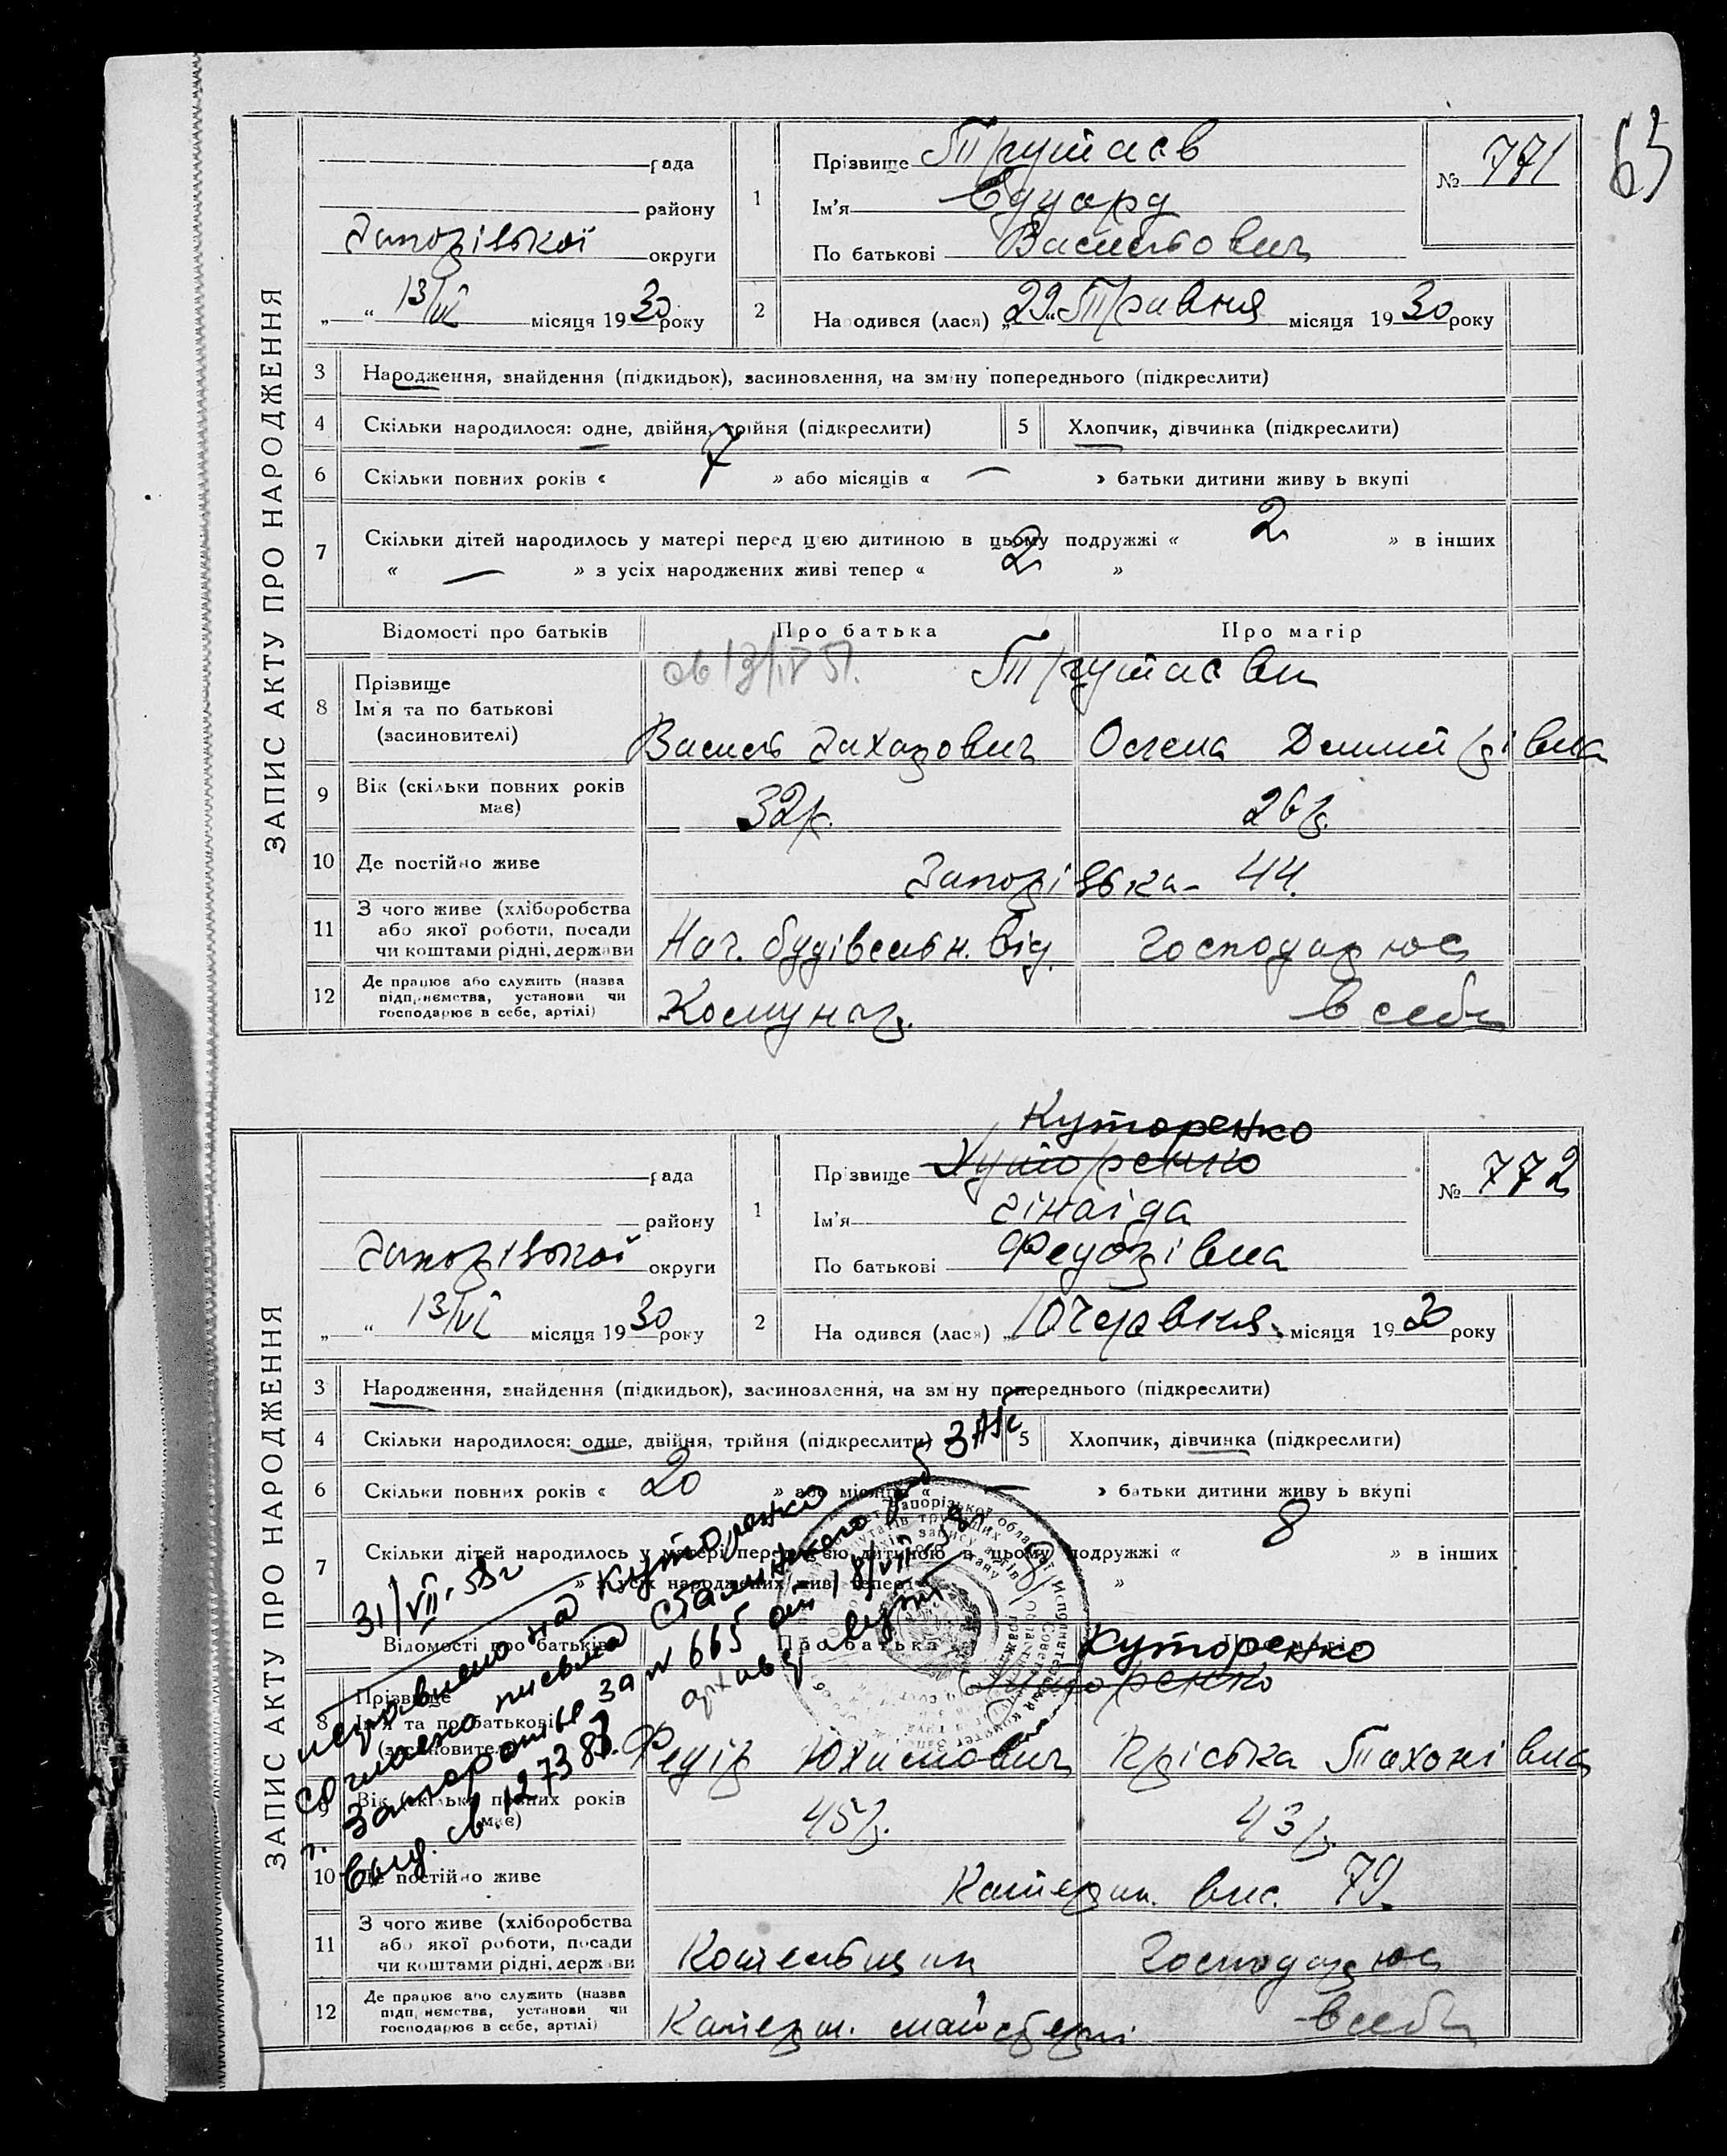 63
ЗАПИС АКТУ ПРО НАРОДЖЕННЯ
рада
району
Запорізької округи
„ “ 13/VI місяця 1930 року
1 Прізвище Трутаєв
Ім'я Едуард
По батькові Васильович
№ 771
2 Народився (лася) „29“ Травня місяця 1930 року
3 Народження, знайдення (підкидьок), засиновлення, на зміну попереднього (підкреслити)
4 Скільки народилося: одне, двійня, трійня (підкреслити) 5 Хлопчик, дівчинка (підкреслити)
6 Скільки повних років « 7 » або місяців « — » батьки дитини живуть вкупі
7 Скільки дітей народилось у матері перед цією дитиною в цьому подружжі « 2 » в інших
« — » з усіх народжених живі тепер « 2 »
Відомості про батьків Про батька Про матір
8 Прізвище
Ім'я та по батькові
(засиновителі)
Трутаєви
Василь Захарович Олена Дмитрівна
9 Вік (скільки повних років має) 32р. 26р.
10 Де постійно живе Запорізька - 44.
11 З чого живе (хліборобства або якої роботи, посади чи коштами рідні, держави Нач. будівельн. від. Господарює
12 Де працює або служить (назва підприємства, установи чи господарює в себе, артілі) Комунар. в себе
ЗАПИС АКТУ ПРО НАРОДЖЕННЯ
рада
району
Запорізької округи
„ “ 13/VI місяця 1930 року
Куторенко
1 Прізвище Хуторенко
Ім'я Зінаїда
По батькові Федорівна
№ 772
2 Народився (лася) „10 Червня місяця 1930 року
3 Народження, знайдення (підкидьок), засиновлення, на зміну попереднього (підкреслити)
4 Скільки народилося: одне, двійня, трійня (підкреслити) 5 Хлопчик, дівчинка (підкреслити)
6 Скільки повних років « 20 » або місяців « — » батьки дитини живуть вкупі
7 Скільки дітей народилось у матері перед цією дитиною в цьому подружжі « 8 » в інших
« » з усіх народжених живі тепер « »
31/VII-58г
исправлено на Куторенко
согласно письма Сталинского р б ЗАГС
г. Запорожье за № 665 от 18/VII-58г
выд. св. 127387.
Відомості про батьків Про батька
8 Прізвище
Ім'я та по батькові
(засиновителі)
Куторенко
Хуторенко
Федір Юхимович Крістка Тахонівна
9 Вік (скільки повних років має) 45р. 43р.
10 Де постійно живе Катерин. вис. 79.
11 З чого живе (хліборобства або якої роботи, посади чи коштами рідні, держави Котельщик Господарює
12 Де працює або служить (назва підприємства, установи чи господарює в себе, артілі) Катерин. майстерні в себе